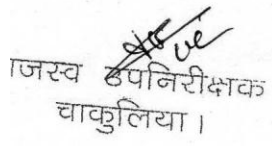 ाजस्व उपनिरीक्षक
चाकुलिया।